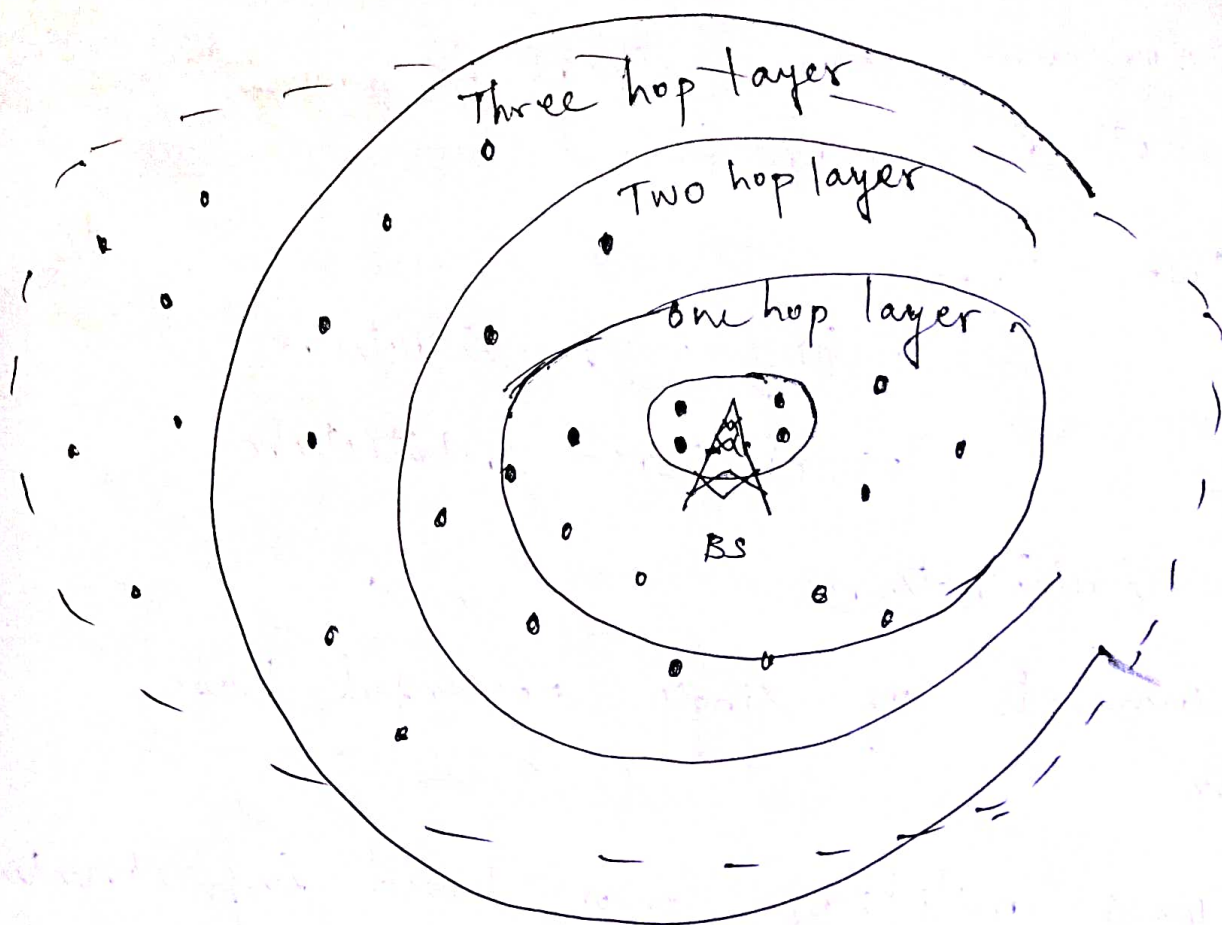 Three hop layer
Two hop layer
one hop layer
BS